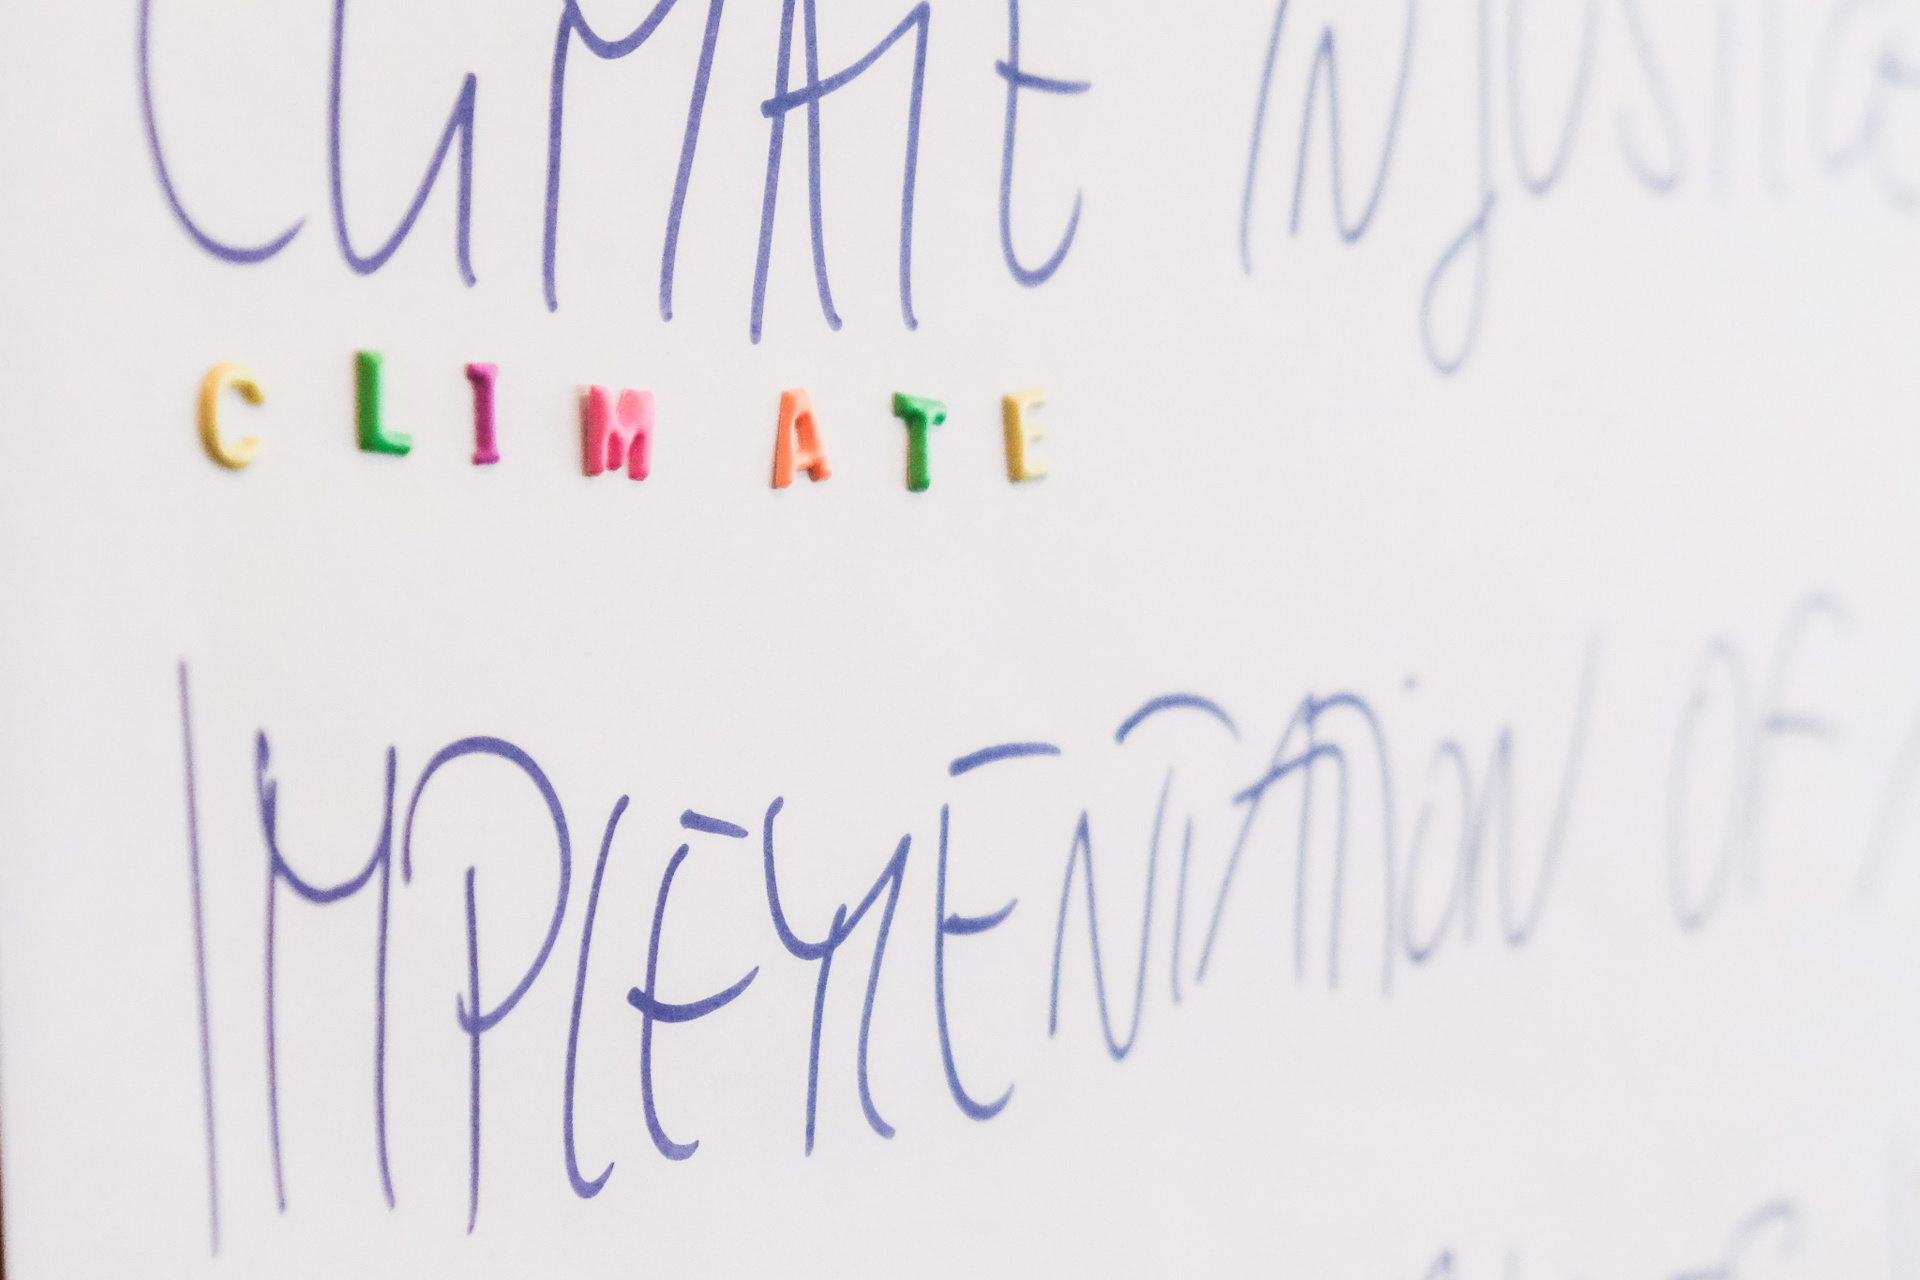 CLIMATE INJUSTICE
CLIMATE
IMPLEMENTATION OF